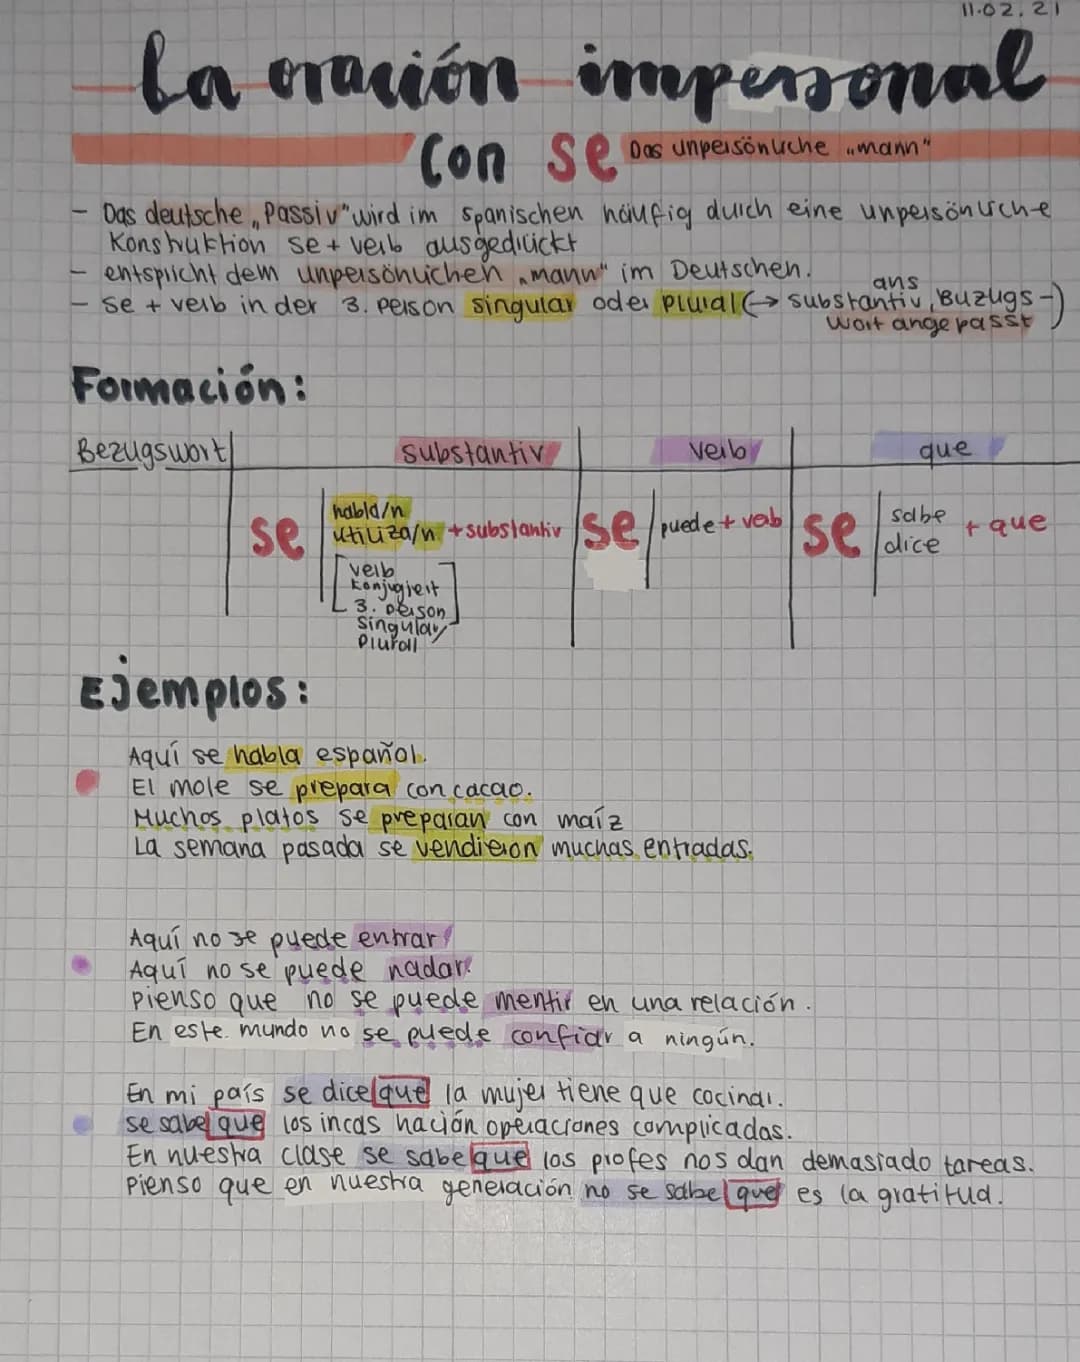 11.02.21
La oración impersonal
con se Das unpersönliche „mann"
- Das deutsche „Passiv" wird im spanischen häufig durch eine unpersönliche
Konstruktion se + verb ausgedrückt
- entspricht dem unpersönlichen „mann" im Deutschen.
- se + verb in der 3. Person singular oder plural (→ ans substantiv, Buzugs-
wort angepasst)
Formación:
Bezugswort substantiv verb que
se habla/n utiliza/n + substantiv se puede + verb se sabe dice + que
[verb
konjugiert
3. person
Singular/
Plurall]
Ejemplos:
Aquí se habla español.
El mole se prepara con cacao.
Muchos platos se preparan con maíz
La semana pasada se vendieron muchas entradas.
Aquí no se puede entrar
Aquí no se puede nadar.
pienso que no se puede mentir en una relación.
En este mundo no se puede confiar a ningún.
En mi país se dice que la mujer tiene que cocinar.
se sabe que los incas hación operaciones complicadas.
En nuestra clase se sabe que los profes nos dan demasiado tareas.
Pienso que en nuestra generación no se sabe que es la gratitud.